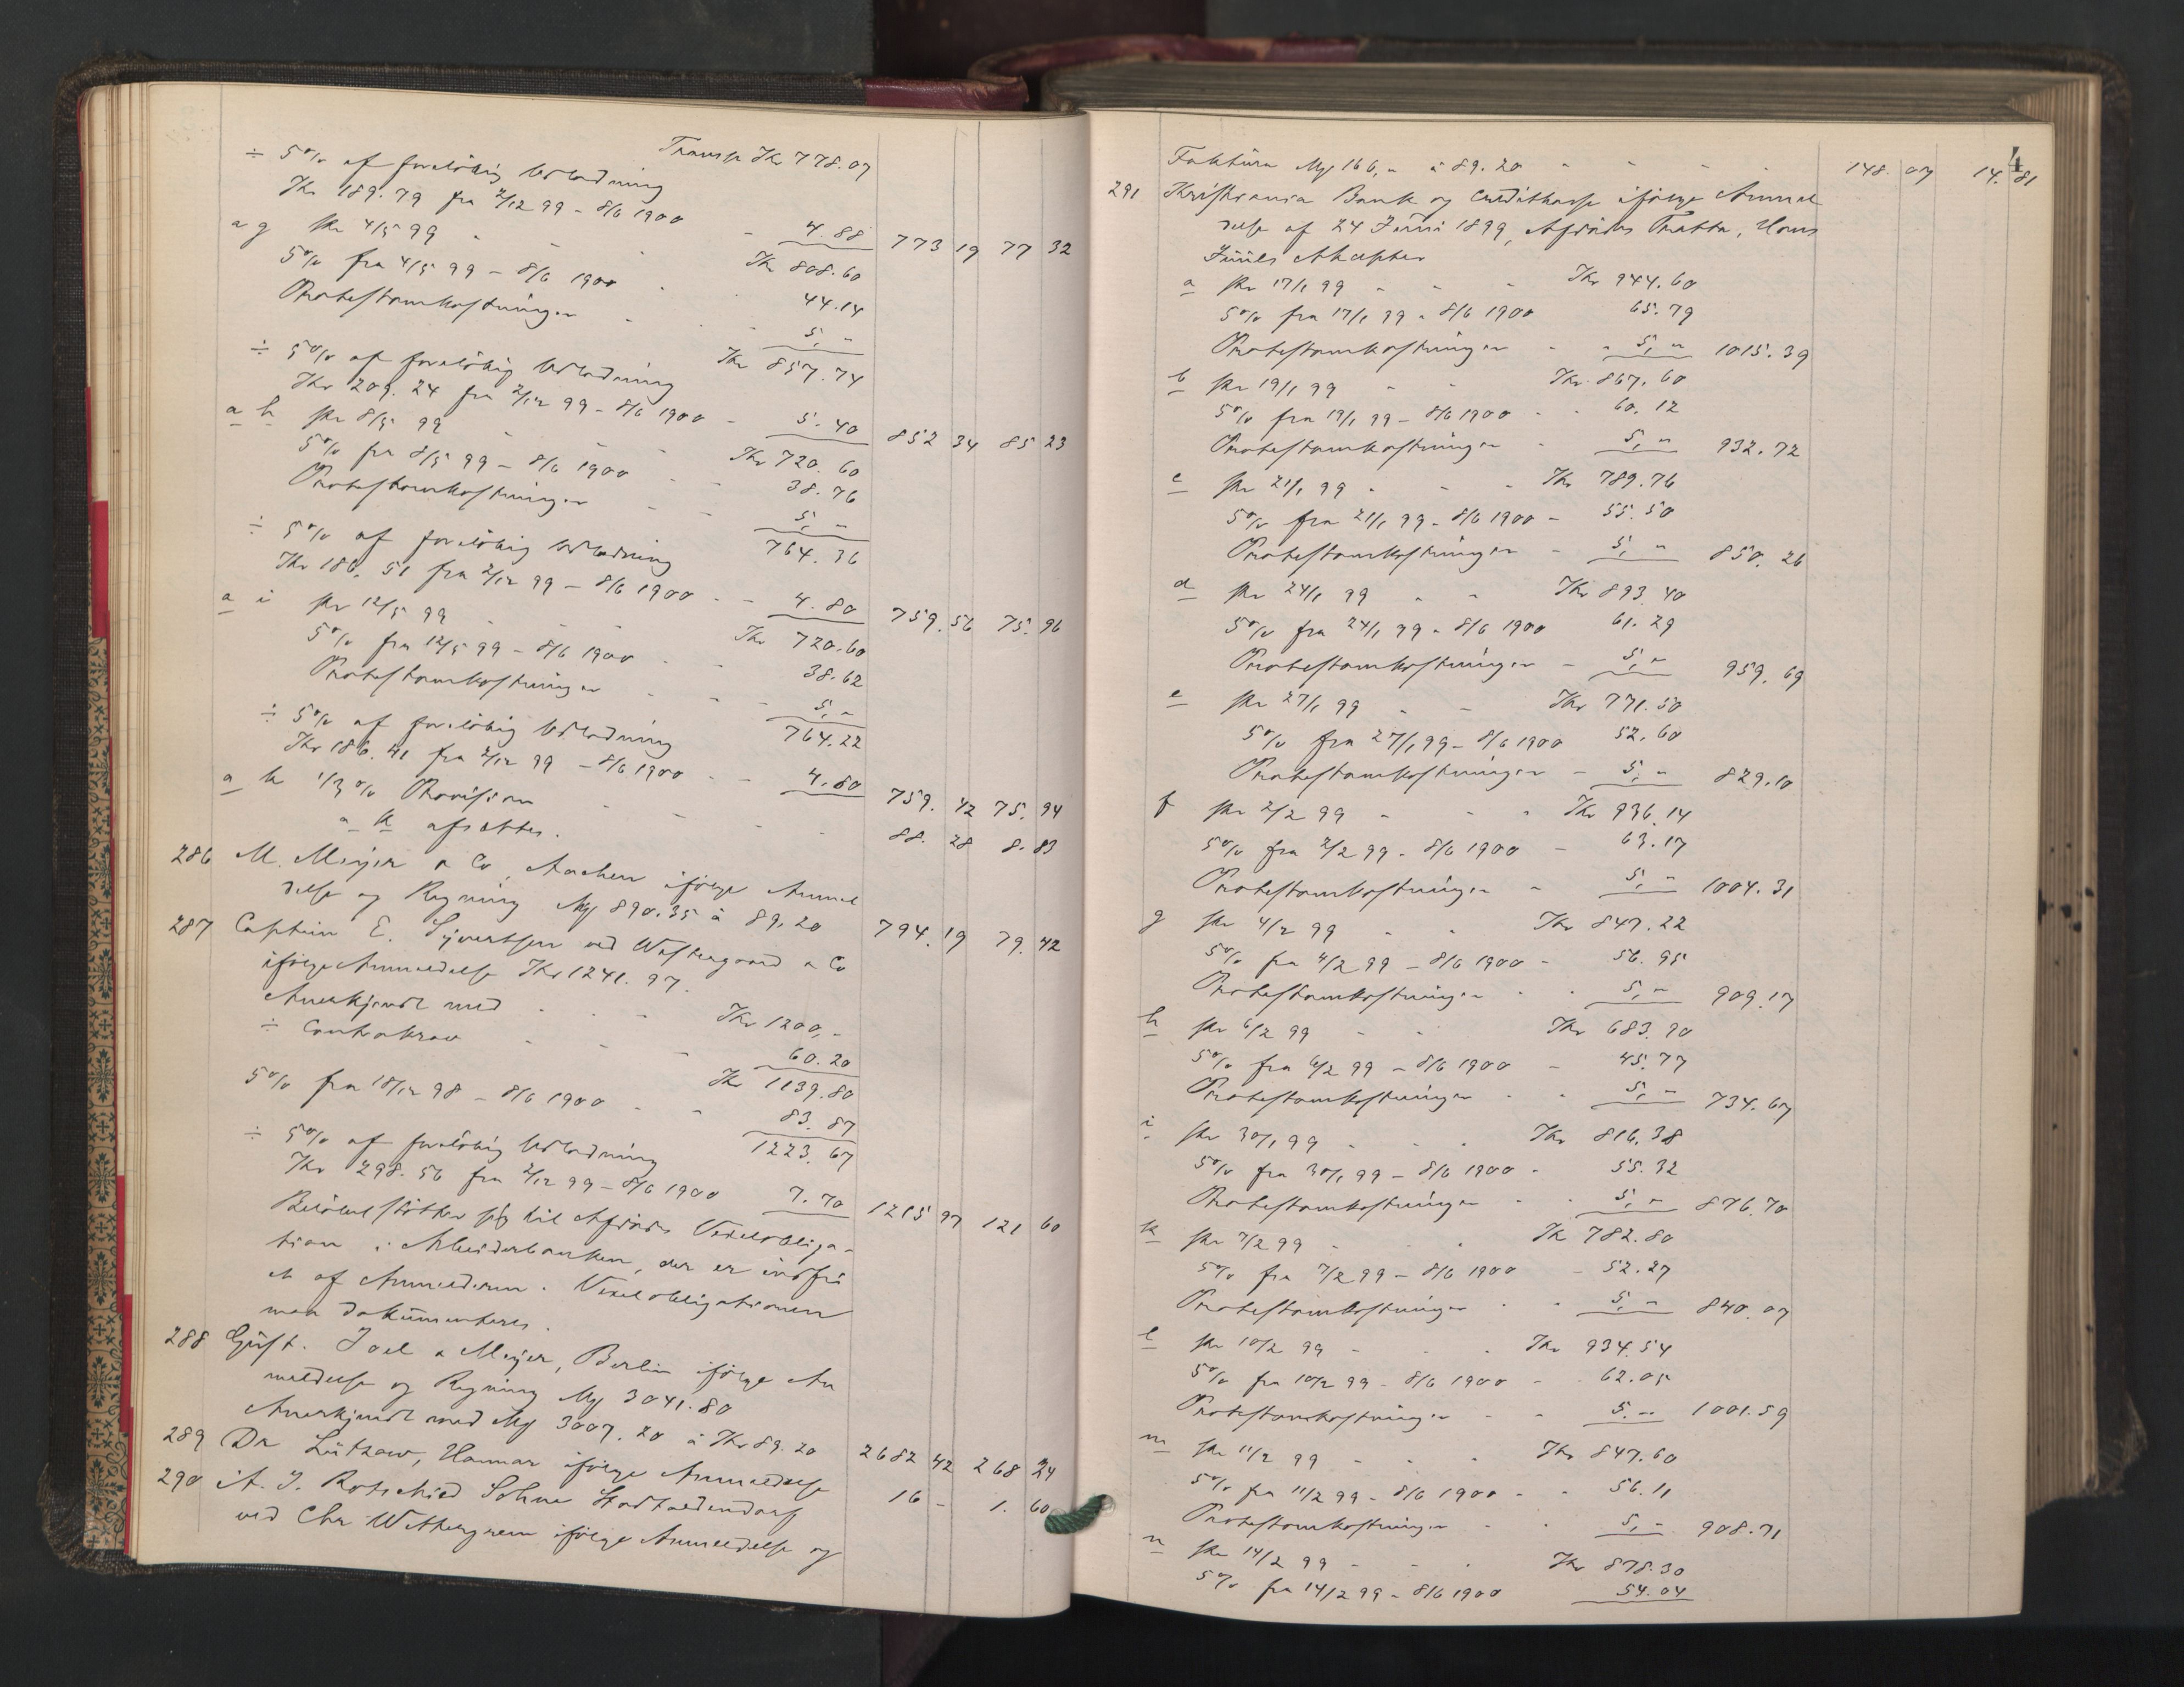 Transp Kr 778.07
÷ 5% af foreløbig Udlodning
Kr 189.79 fra 2/12 99 - 8/6 1900 - 4.88 773 19 77 32
a g pr 4/5 99 - - - Kr 808.60
5% fra 4/5 99 - 8/6 1900 - - 44.14
Protestomkostninger - - - 5, -
Kr 857.74
÷ 5% af foreløbig Udlodning
Kr 209.24 fra 2/12 99 - 8/6 1900 - 5.40 852 34 85 23
a h pr 8/5 99 - - - Kr 720.60
5% fra 8/5 99 - 8/6 1900 - - 38.76
Protestomkostninger - - 5, -
764.36
÷ 5% af foreløbig Udlodning
Kr 186.51 fra 2/12 99 - 8/6 1900 - - 4.80 759.56 75.96
a i pr 12/5 99 - - - Kr 720.60
5% fra 12/5 99 - 8/6 1900 - - 38.62
Protestomkostninger - - - 5, -
764.22
÷ 5% af foreløbig Udlodning
Kr 186.41 fra 2/12 99 - 8/6 1900 - - 4.80 759.42 75.94
a k 1/3% Provision - - - - 88.28 8.83
a k afsættes.
286 M. Meyer & Co, Aachen ifølge Anmel
delse og Regning Mk 890.35 à 89,20 794.19 79.42
287 Captein E. Syvertsen ved Westergaard & Co
ifølge Anmeldelse Kr 1241.97.
Anerkjendt med - - - Kr 1200, -
÷ Contrakrav - - - 60.20
Kr 1139.80
5% fra 18/12 98 - 8/6 1900 - - 83.87
1223.67
÷ 5% af foreløbig Udlodning
Kr 298.56 fra 2/12 99 - 8/6 1900 7.70 1215 97 121 60
Beløbet støtter sig til Afdøde Vexelobliga-
tion i Arbeiderbanken, der er indfri
et af Anmelderen. Vexelobligationen
maa dokumenteres.
288 Gust. Joel & Meyer, Berlin ifølge An
meldelse og Regning Mk 3041.80
Anerkjendt med Mk 3007.20 à Kr 89.20 2682 42 268 24
289 Dr Lützow, Hamar ifølge Anmeldelse 16 - 1.60
290 A. J. Rotschild Söhne Stadtoldendorf
ved Chr Wettergreen ifølge Anmeldelse og
4
Faktura Mk 166, - à 89.20 - - - - 148.07 14.81
291 Kristiania Bank og Creditkasse ifølge Anmel
delse af 24 Juni 1899, Afdødes Tratta, Hans
Juuls Akcepter
a pr 17/1 99 - - - Kr 944.60
5% fra 17/1 99 - 8/6 1900 65.79
Protestomkostninger - - 5, - 1015.39
b pr 19/1 99 - - Kr 867.60
5% fra 19/1 99 - 8/6 1900 - - 60.12
Protestomkostninger - 5, - 932.72
c pr 21/1 99 - - - Kr 789.76
5% fra 21/1 99 - 8/6 1900 - 55.50
Protestomkostninger - 5, - 850.26
d pr 24/1 99 - - Kr 893.40
5% fra 24/1 99 - 8/6 1900 61.29
Protestomkostninger - 5, - 959.69
e pr 27/1 99 - - Kr 771.50
5% fra 27/1 99 - 8/6 1900 52.60
Protestomkostninger - 5, - 829.10
f pr 2/2 99 - - - Kr 936.14
5% fra 2/2 99 - 8/6 1900 - 63.17
Protestomkostninger - 5, - 1004.31
g pr 4/2 99 - - Kr 847.22
5% fra 4/2 99 - 8/6 1900 - 56.95
Protestomkostninger - - 5, - 909.17
h pr 6/2 99 - - Kr 683.90
5% fra 6/2 99 - 8/6 1900 - 45.77
Protestomkostninger - - 5, - 734.67
i pr 30/1 99 - - - Kr 816.38
5% fra 30/1 99 - 8/6 1900 - 55.32
Protestomkostninger - - 5, - 876.70
k pr 7/2 99 - - Kr 782.80
5% fra 7/2 99 - 8/6 1900 - 52.27
Protestomkostninger - - 5, - 840.07
l pr 10/2 99 - - Kr 934.54
5% fra 10/2 99 - 8/6 1900 - - 62.05
Protestomkostninger - - 5. - 1001.59
m pr 11/2 99 - - - Kr 847.60
5% fra 11/2 99 - 8/6 1900 - - 56.11
Protestomkostninger - - 5, - 908.71
n pr 14/2 99 - - - Kr 878.30
5% fra 14/2 99 - 8/6 1900 54.04